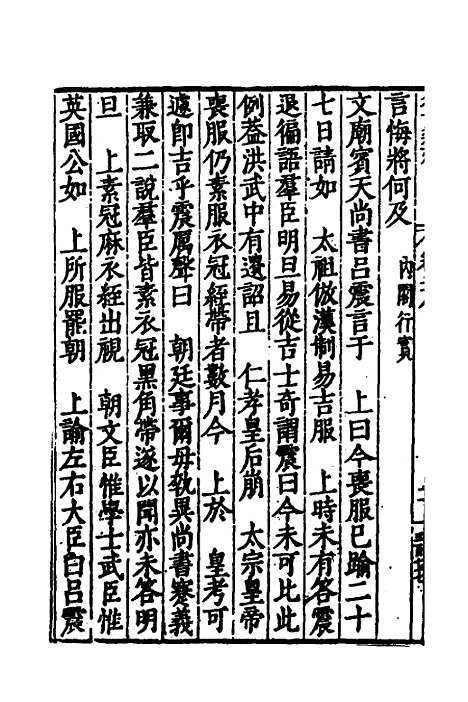 言悔將何及　內閣行實
文廟賓天尚書吕震言于　上曰今喪服已踰二十
七日請如　太祖倣漢制易吉服　上時未有答震
退徧語羣臣明旦易從吉士奇謂震曰今未可比此
例葢洪武中有遺詔且　仁孝皇后崩　太宗皇帝
喪服仍素服衣冠絰帶者數月今　上於　皇考可
遽即吉乎震厲聲曰　朝廷事爾毋執異尚書蹇義
兼取二說羣臣皆素衣冠黑角帶遂以聞亦未答明
旦　上素冠麻衣絰出視　朝文臣惟學士武臣惟
英國公如　上所服罷朝　上諭左右大臣曰吕震